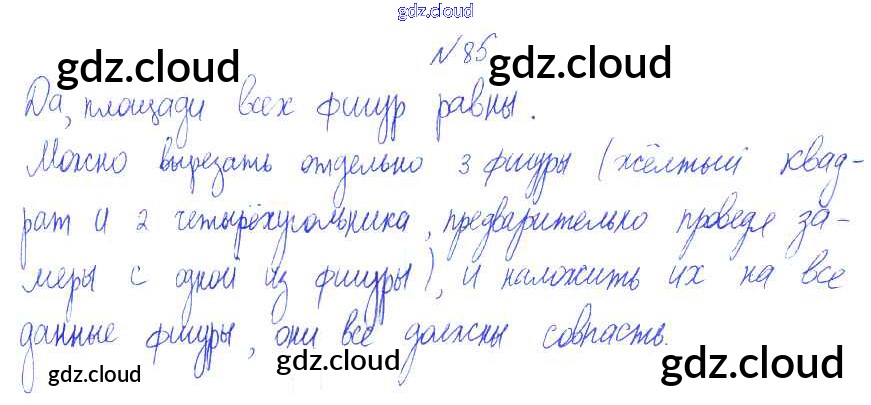 gdz.cloud
№85
gdz.cloud gdz.cloud
Да, площади всех фигур равны.
Можно вырезать отдельно 3 фигуры (жёлтый квад-
рат и 2 четырёхугольника, предварительно проведя за-
меры с одной из фигуры), и наложить их на все
данные фигуры, они все должны совпасть.
gdz.cloud gdz.cloud gdz.cloud